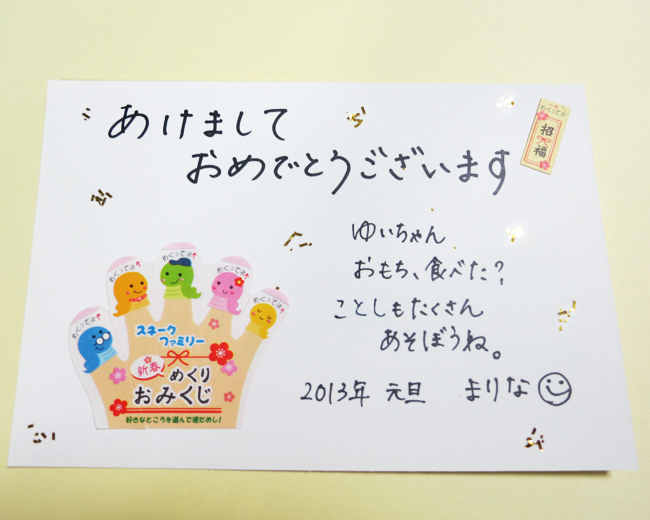 あけまして
おめでとうございます
めくってネ
招福
ゆいちゃん
おもち、食べた？
ことしもたくさん
あそぼうね。
2013年 元旦 まりな
めくってネ
めくってネ
めくってネ
めくってネ
スネーク
ファミリー
新春
めくり
おみくじ
好きなところを選んで運だめし！